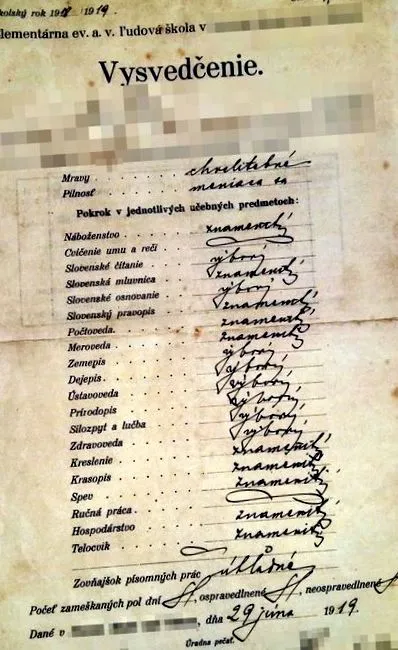 školský rok 1918/1919.
elementárna ev. a. v. ľudová škola v
Vysvedčenie.
Mravy chvalitebné
Pilnosť meniaca sa
Pokrok v jednotlivých učebných predmetoch:
Náboženstvo znamenitý
Cvičenie umu a reči
Slovenské čítanie výborný
Slovenská mluvnica znamenitý
Slovenské osnovanie výborný
Slovenský pravopis znamenitý
Počtoveda znamenitý
Meroveda znamenitý
Zemepis výborný
Dejepis výborný
Ústavoveda výborný
Prírodopis výborný
Silozpyt a lučba výborný
Zdravoveda výborný
Kreslenie znamenitý
Krasopis znamenitý
Spev znamenitý
Ručná práca
Hospodárstvo znamenitý
Telocvik znamenitý
Zovňajšok písomných prác úhľadné
Počet zameškaných pol dní, ospravedlnené, neospravedlnené
Dané v, dňa 29 júna 1919.
Úradna pečať.